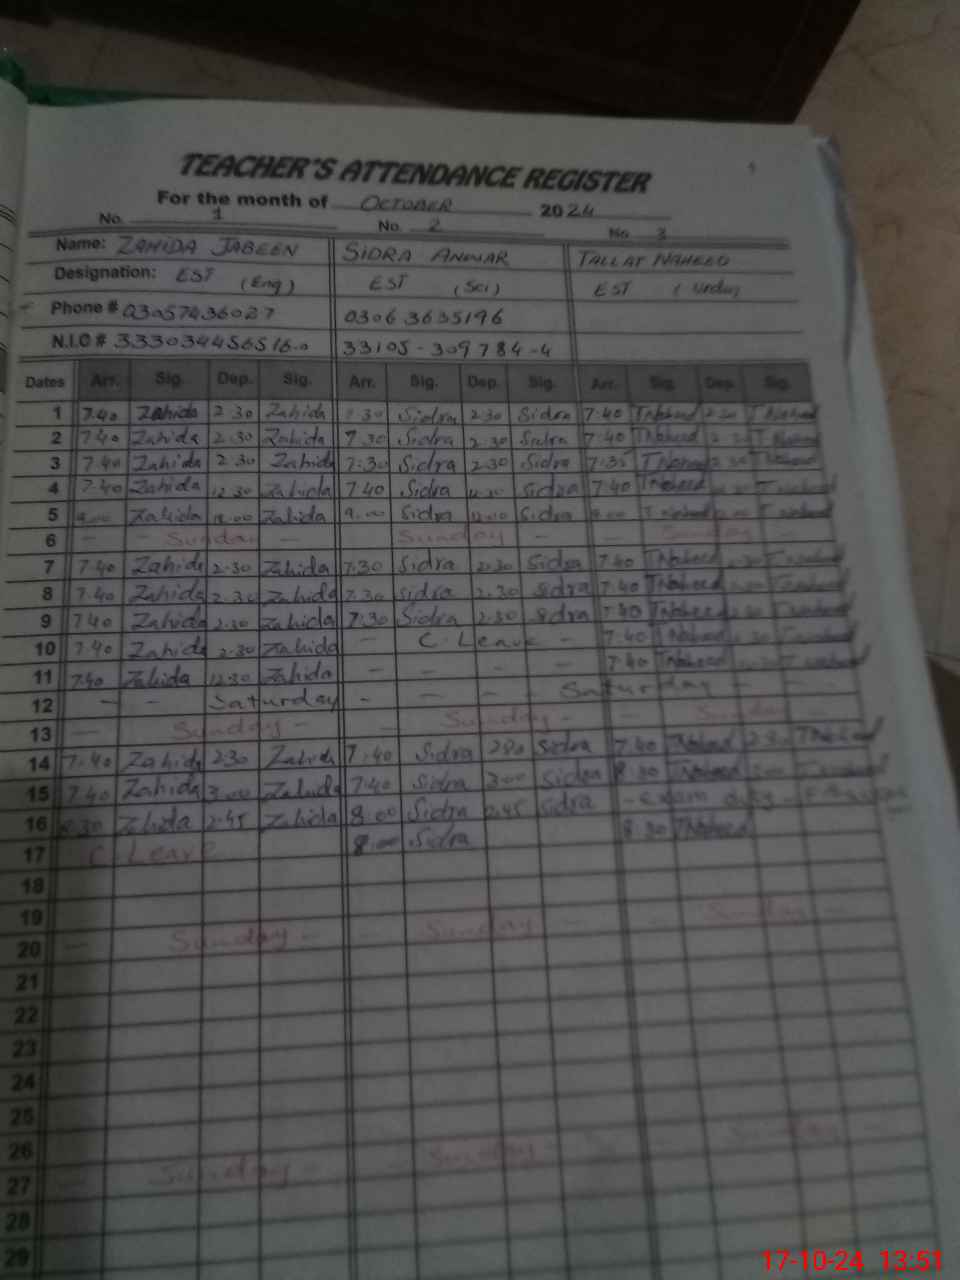 TEACHER'S ATTENDANCE REGISTER
For the month of OCTOBER 2024
No. 1 No. 2 No. 3
Name: ZAHIDA JABEEN SIDRA ANWAR TALLAT NAHEED
Designation: EST (Eng) EST (Sci) EST (Urdu)
Phone # 03057436027 03063635196
N.I.C # 333034456516-0 33105-309784-4
Dates Arr. Sig. Dep. Sig. Arr. Sig. Dep. Sig. Arr. Sig. Dep. Sig.
1 7.40 Zahida 2.30 Zahida Sidra 2.30 Sidra 7:40 TNaheed
2 7.40 Zahida 2.30 Zahida 7.30 Sidra 2.30 Sidra 7:40 TNaheed
3 7.40 Zahida 2.30 Zahida 7:30 Sidra 2.30 Sidra 7:35 TNaheed
4 7.40 Zahida 12.30 Zahida 7.40 Sidra Sidra 7.40 TNaheed
5 9.00 Zahida 12.00 Zahida 9.00 Sidra 12.00 Sidra 9.00
6 - - Sunday - Sunday - - Sunday -
7 7.40 Zahida 2.30 Zahida 7.30 Sidra 2.30 Sidra 7.40 TNaheed
8 7.40 Zahida 2.30 Zahida 7.30 Sidra 2.30 Sidra 7.40 TNaheed
9 7.40 Zahida 2.30 Zahida 7:30 Sidra 2.30 Sidra 7.40 TNaheed
10 7.40 Zahida 2.30 Zahida - C. Leave - 7.40 TNaheed
11 7.40 Zahida 12.30 Zahida - - - - 7.40 TNaheed
12 - - Saturday - - - Saturday - -
13 - Sunday - - Sunday - - Sunday -
14 7.40 Zahida 2.30 Zahida 7:40 Sidra 2.30 Sidra 7.40 TNaheed 2.30 TNaheed
15 7.40 Zahida 3.00 Zahida 7.40 Sidra 3.00 Sidra 8.30 TNaheed
16 8.30 Zahida 2.45 Zahida 8.00 Sidra 2.45 Sidra - exam duty -
17 C. Leave 8.00 Sidra 8.30 TNaheed
18
19
20 - Sunday - - Sunday - - Sunday -
21
22
23
24
25
26
27 - Sunday - - Sunday - - Sunday -
28
29
17-10-24 13:51